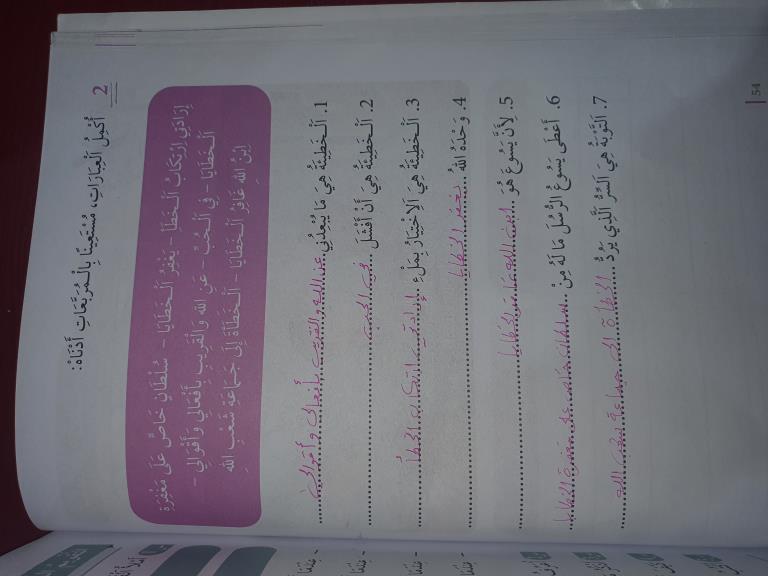 2 أُكْمِلُ الْعِبَارَاتِ، مُسْتَعِينًا بِالْمُرَبَّعَاتِ أَدْنَاهُ:
إِرَادَتِي اِرْتِكَابُ الْخَطَأ - يَغْفِرُ الْخَطَايَا - سُلْطَانٍ خَاصٍّ عَلَى مَغْفِرَةِ
الْخَطَايَا - فِي الْحُبِّ - عَنِ اللهِ وَالْقَرِيبِ بِأَفْعَالِي وَأَقْوَالِي -
ابْنُ اللهِ غَافِرُ الْخَطَايَا - الْخَطَأَةَ إِلَى جَمَاعَةِ شَعْبِ اللهِ
1. الْخَطِيئَةُ هِيَ مَا يُبْعِدُنِي عن الله والقريب بأفعالي وأقوالي
2. الْخَطِيئَةُ هِيَ أَنْ أَفْشَلَ في الحب
3. الْخَطِيئَةُ هِيَ الِاخْتِيَارُ بِمِلْءِ إرادتي ارتكاب الخطأ
4. وَحْدَهُ اللهُ يغفر الخطايا
5. لِأَنَّ يَسُوعَ هُوَ ابن الله غافر الخطايا
6. أَعْطَى يَسُوعُ الرُّسُلَ مَا لَهُ مِنْ سلطان خاص على مغفرة الخطايا
7. اَلتَّوْبَةُ هِيَ السِّرُّ الَّذِي يَرُدُّ الخطأة الى جماعة شعب الله
54